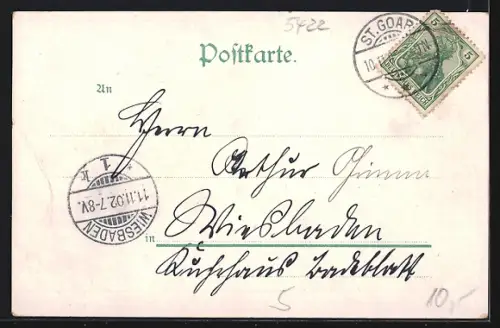 5422
Postkarte.
ST. GOAR
10
5
5
An
Herrn
Arthur
1 k
11.11.02.7-8V.
WIESBADEN
in Wiesbaden
Kurhaus Badeblatt
5
10,-